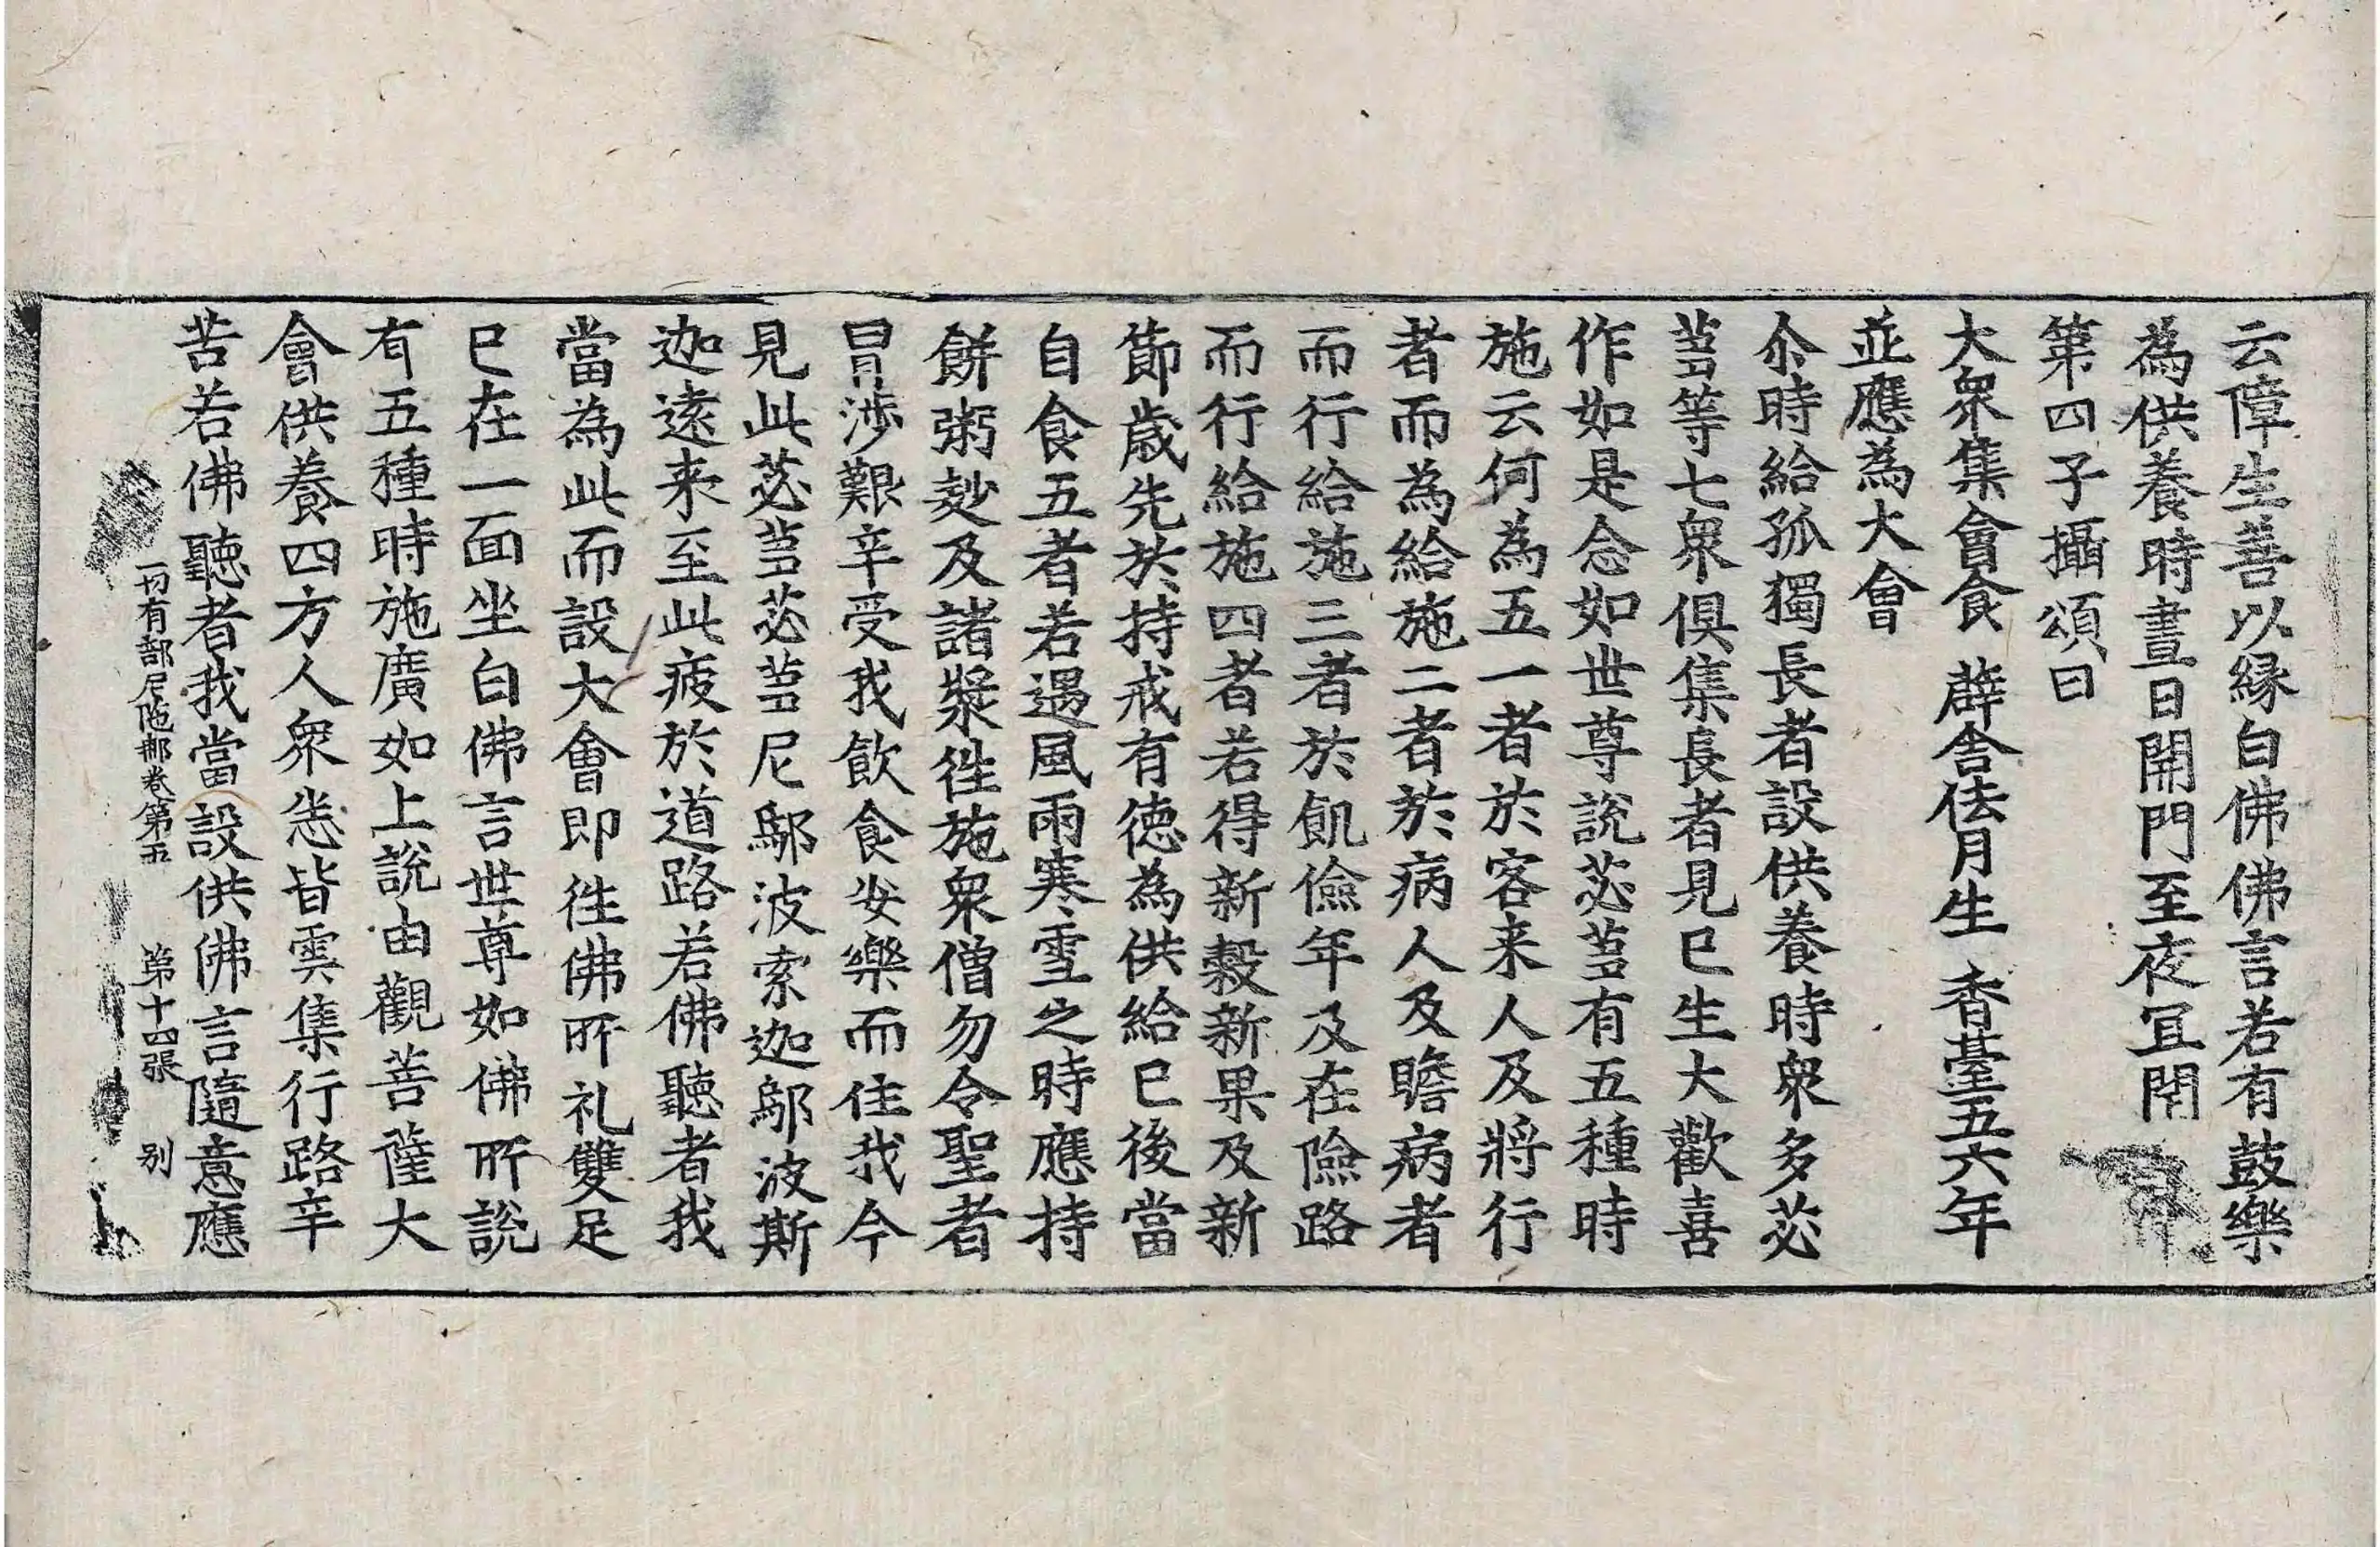 云障生善以縁白佛佛言若有鼓樂
為供養時晝日開門至夜冝閇
第四子攝頌曰
大衆集會食　薜舍佉月生　香臺五六年
並應為大會
尒時給孤獨長者設供養時衆多苾
蒭等七衆俱集長者見已生大歡喜
作如是念如世尊說苾蒭有五種時
施云何為五一者於客来人及將行
者而為給施二者於病人及瞻病者
而行給施三者於飢儉年及在險路
而行給施四者若得新穀新果及新
節歳先於持戒有徳為供給已後當
自食五者若遇風雨寒雪之時應持
餅粥麨及諸漿徃施衆僧勿令聖者
冒渉艱辛受我飲食安樂而住我今
見此苾蒭苾蒭尼鄔波索迦鄔波斯
迦逺来至此疲於道路若佛聽者我
當為此而設大會即徃佛所礼雙足
已在一面坐白佛言世尊如佛所說
有五種時施廣如上說由觀菩薩大
會供養四方人衆悉皆雲集行路辛
苦若佛聽者我當設供佛言隨意應
一切有部尼陁那卷第五　第十四張　别